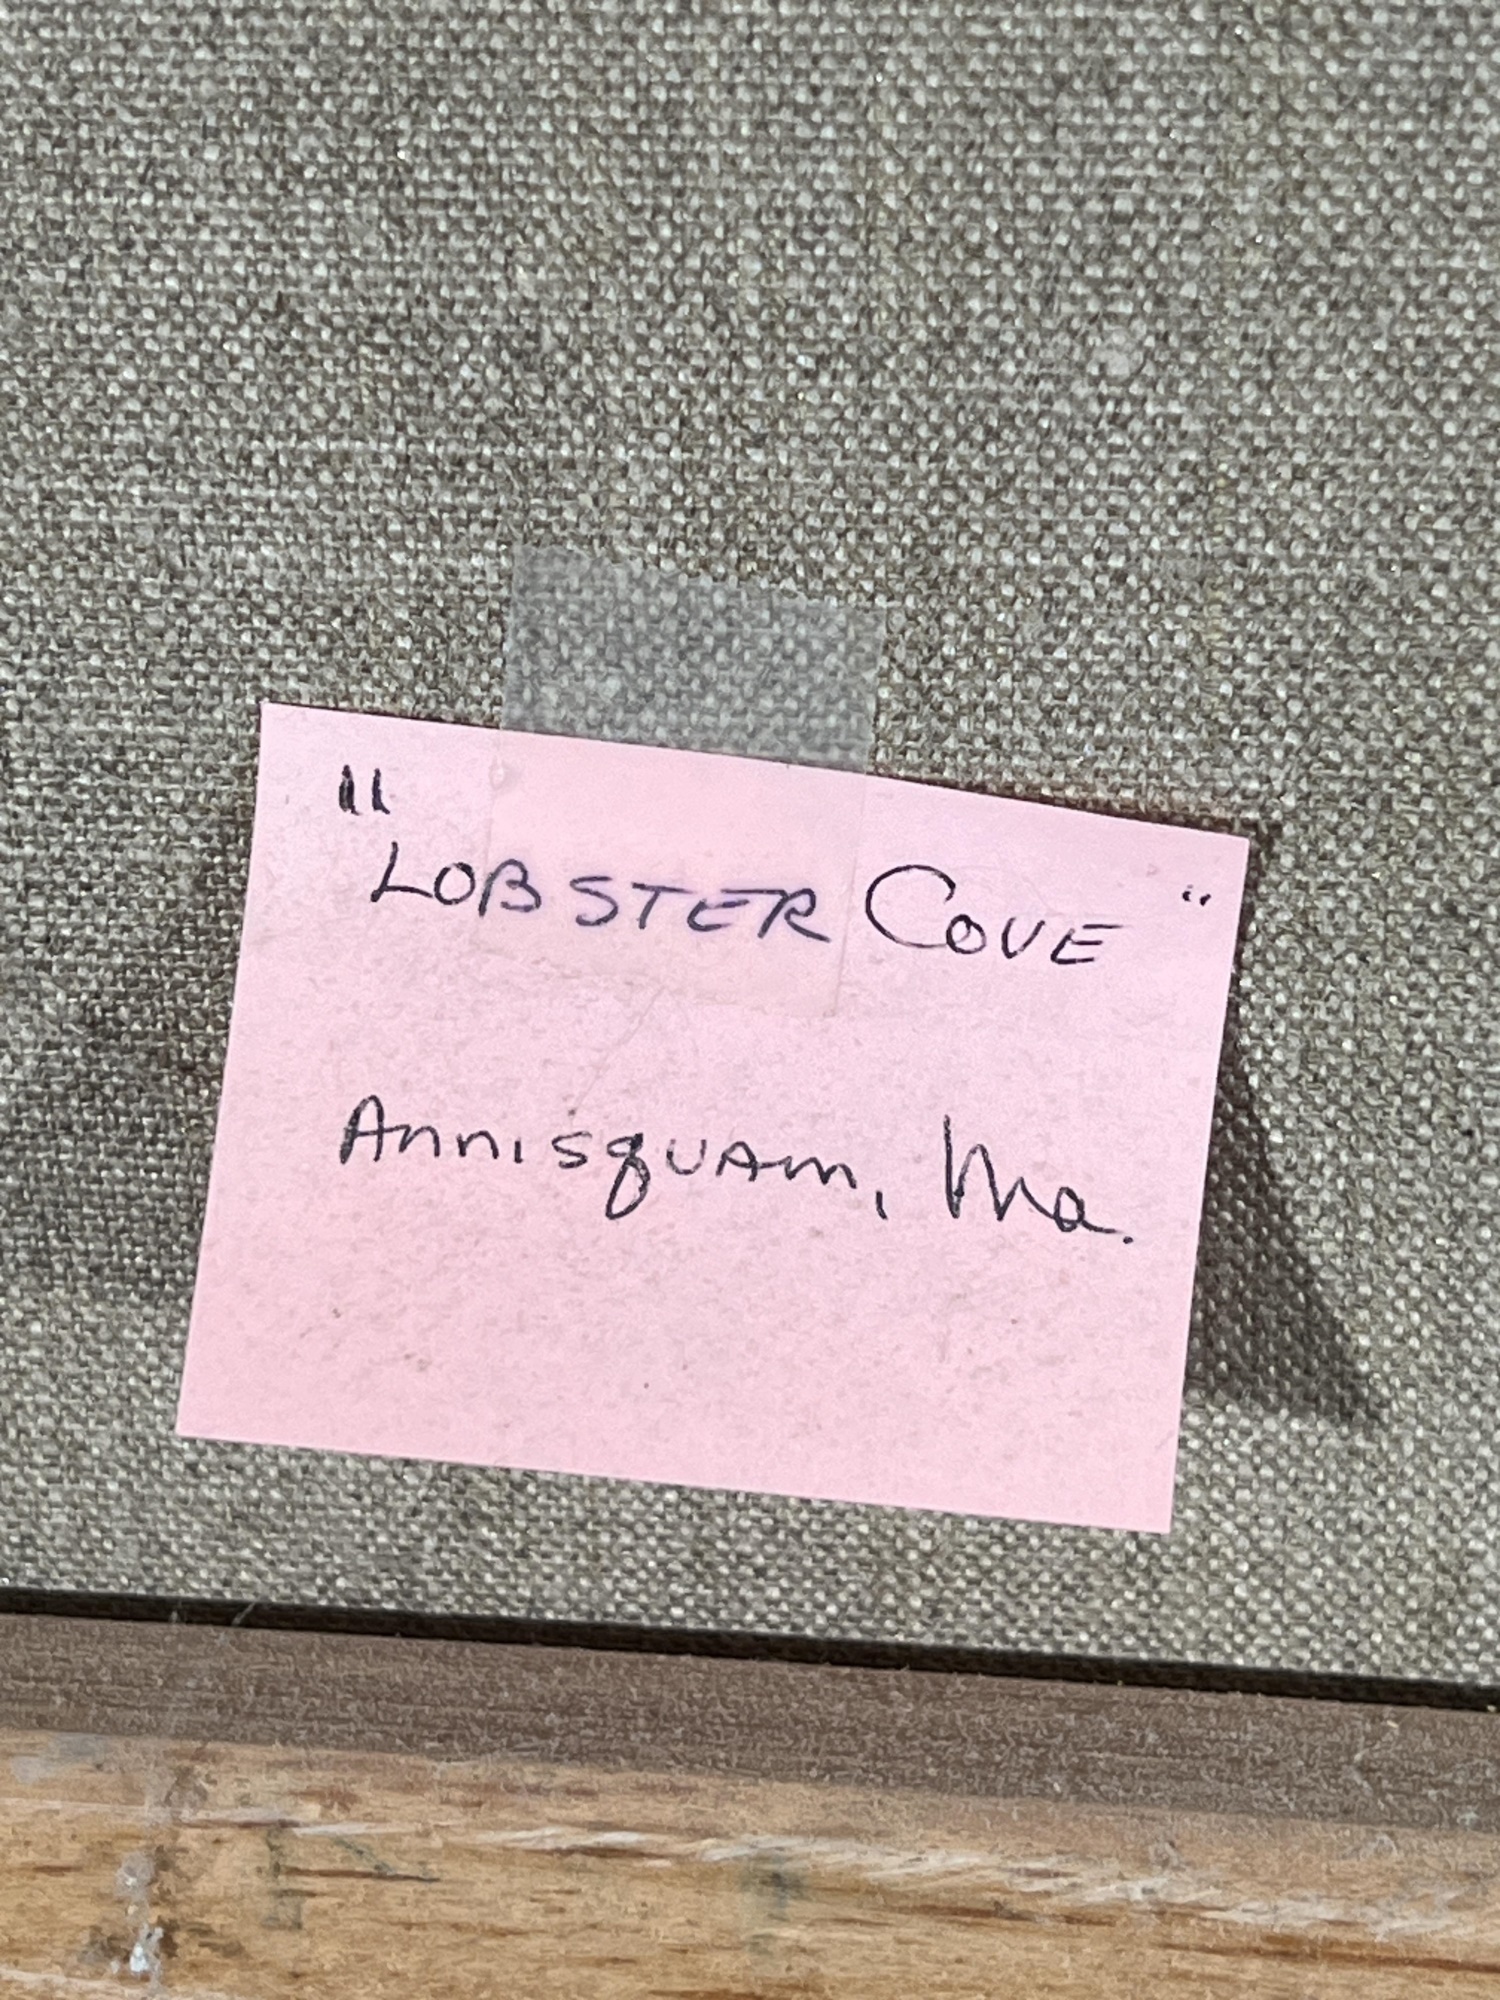 "LOBSTER COVE"
Annisquam, Ma.